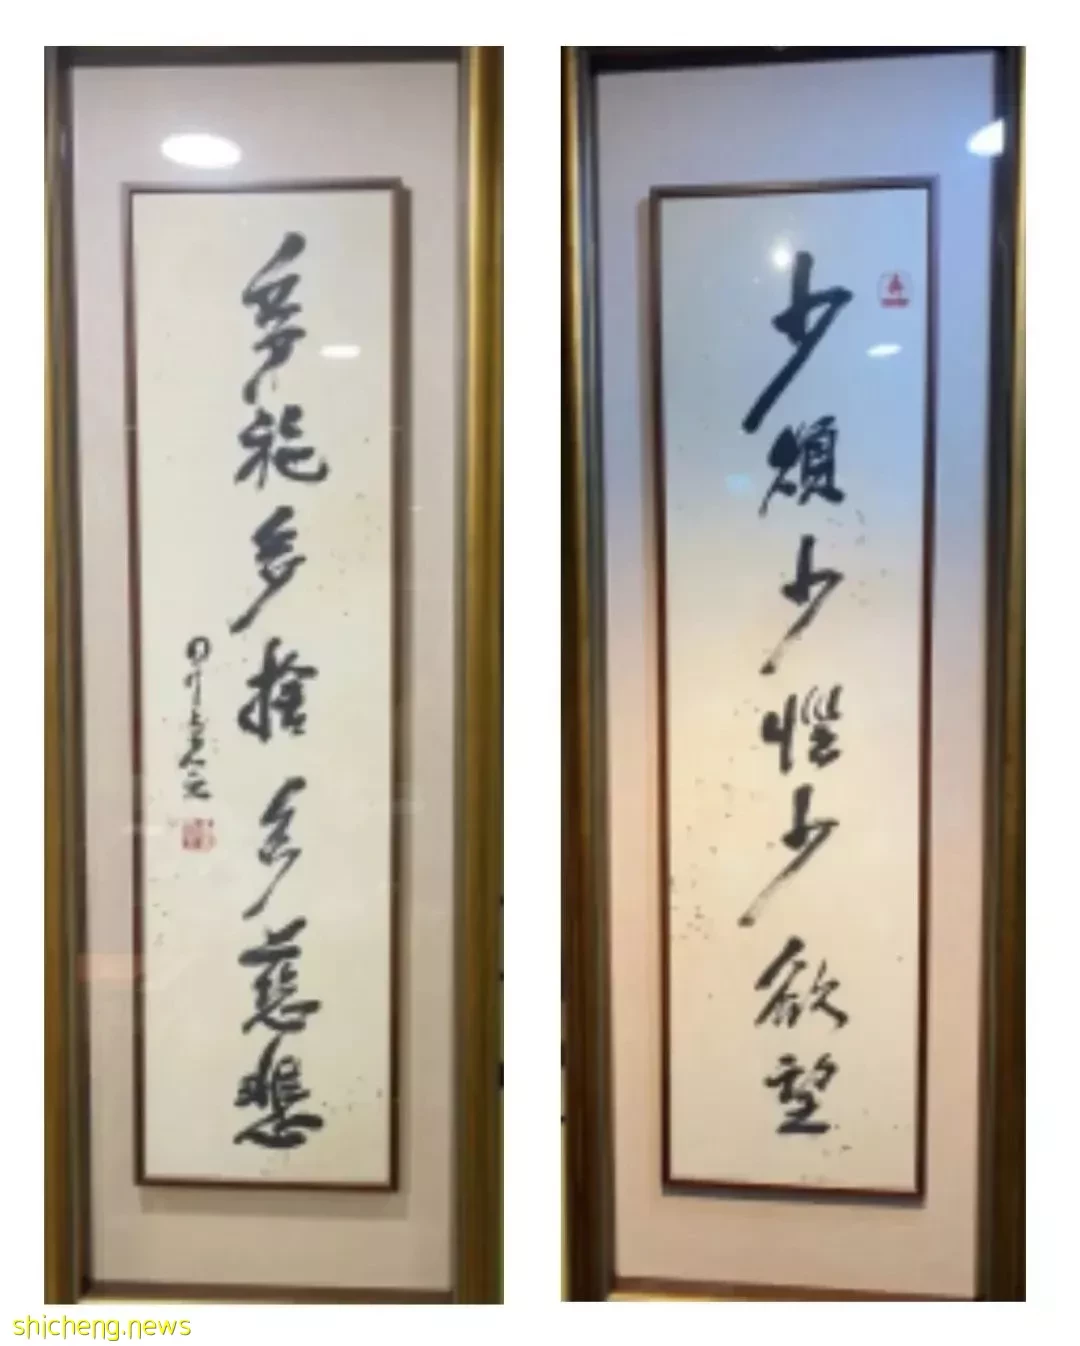 少煩少惱少欲望
多施多捨多慈悲
shicheng.news